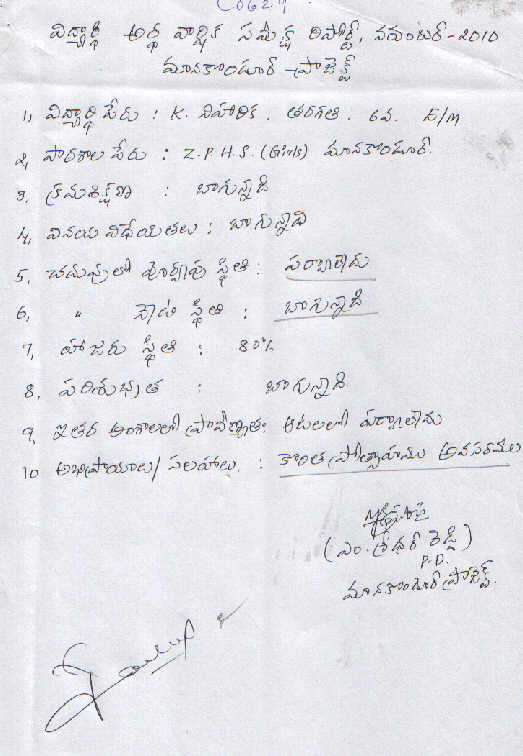 C0629
విద్యార్థి అర్థ వార్షిక సమీక్ష రిపోర్ట్, నవంబర్ - 2010
మానకొండూర్ ప్రాజెక్ట్
1, విద్యార్థి పేరు : K. నిహారిక. తరగతి. 6వ. E/M
2, పాఠశాల పేరు : Z.P.H.S. (Girls) మానకొండూర్.
3. క్రమశిక్షణ : బాగున్నది
4, వినయ విధేయతలు : బాగున్నది
5, చదువులో పూర్వపు స్థితి : పర్వాలేదు
6, " నేటి స్థితి : బాగున్నది
7, హాజరు స్థితి : 80%
8. పరిశుభ్రత : బాగున్నది
9, ఇతర అంశాలలో ప్రావీణ్యత: ఆటలలో పర్వాలేదు
10 అభిప్రాయాలు/సలహాలు. : కొంత ప్రోత్సాహము అవసరము
(ఎం. శ్రీధర్ రెడ్డి)
P.D.
మానకొండూర్ ప్రాజెక్ట్.